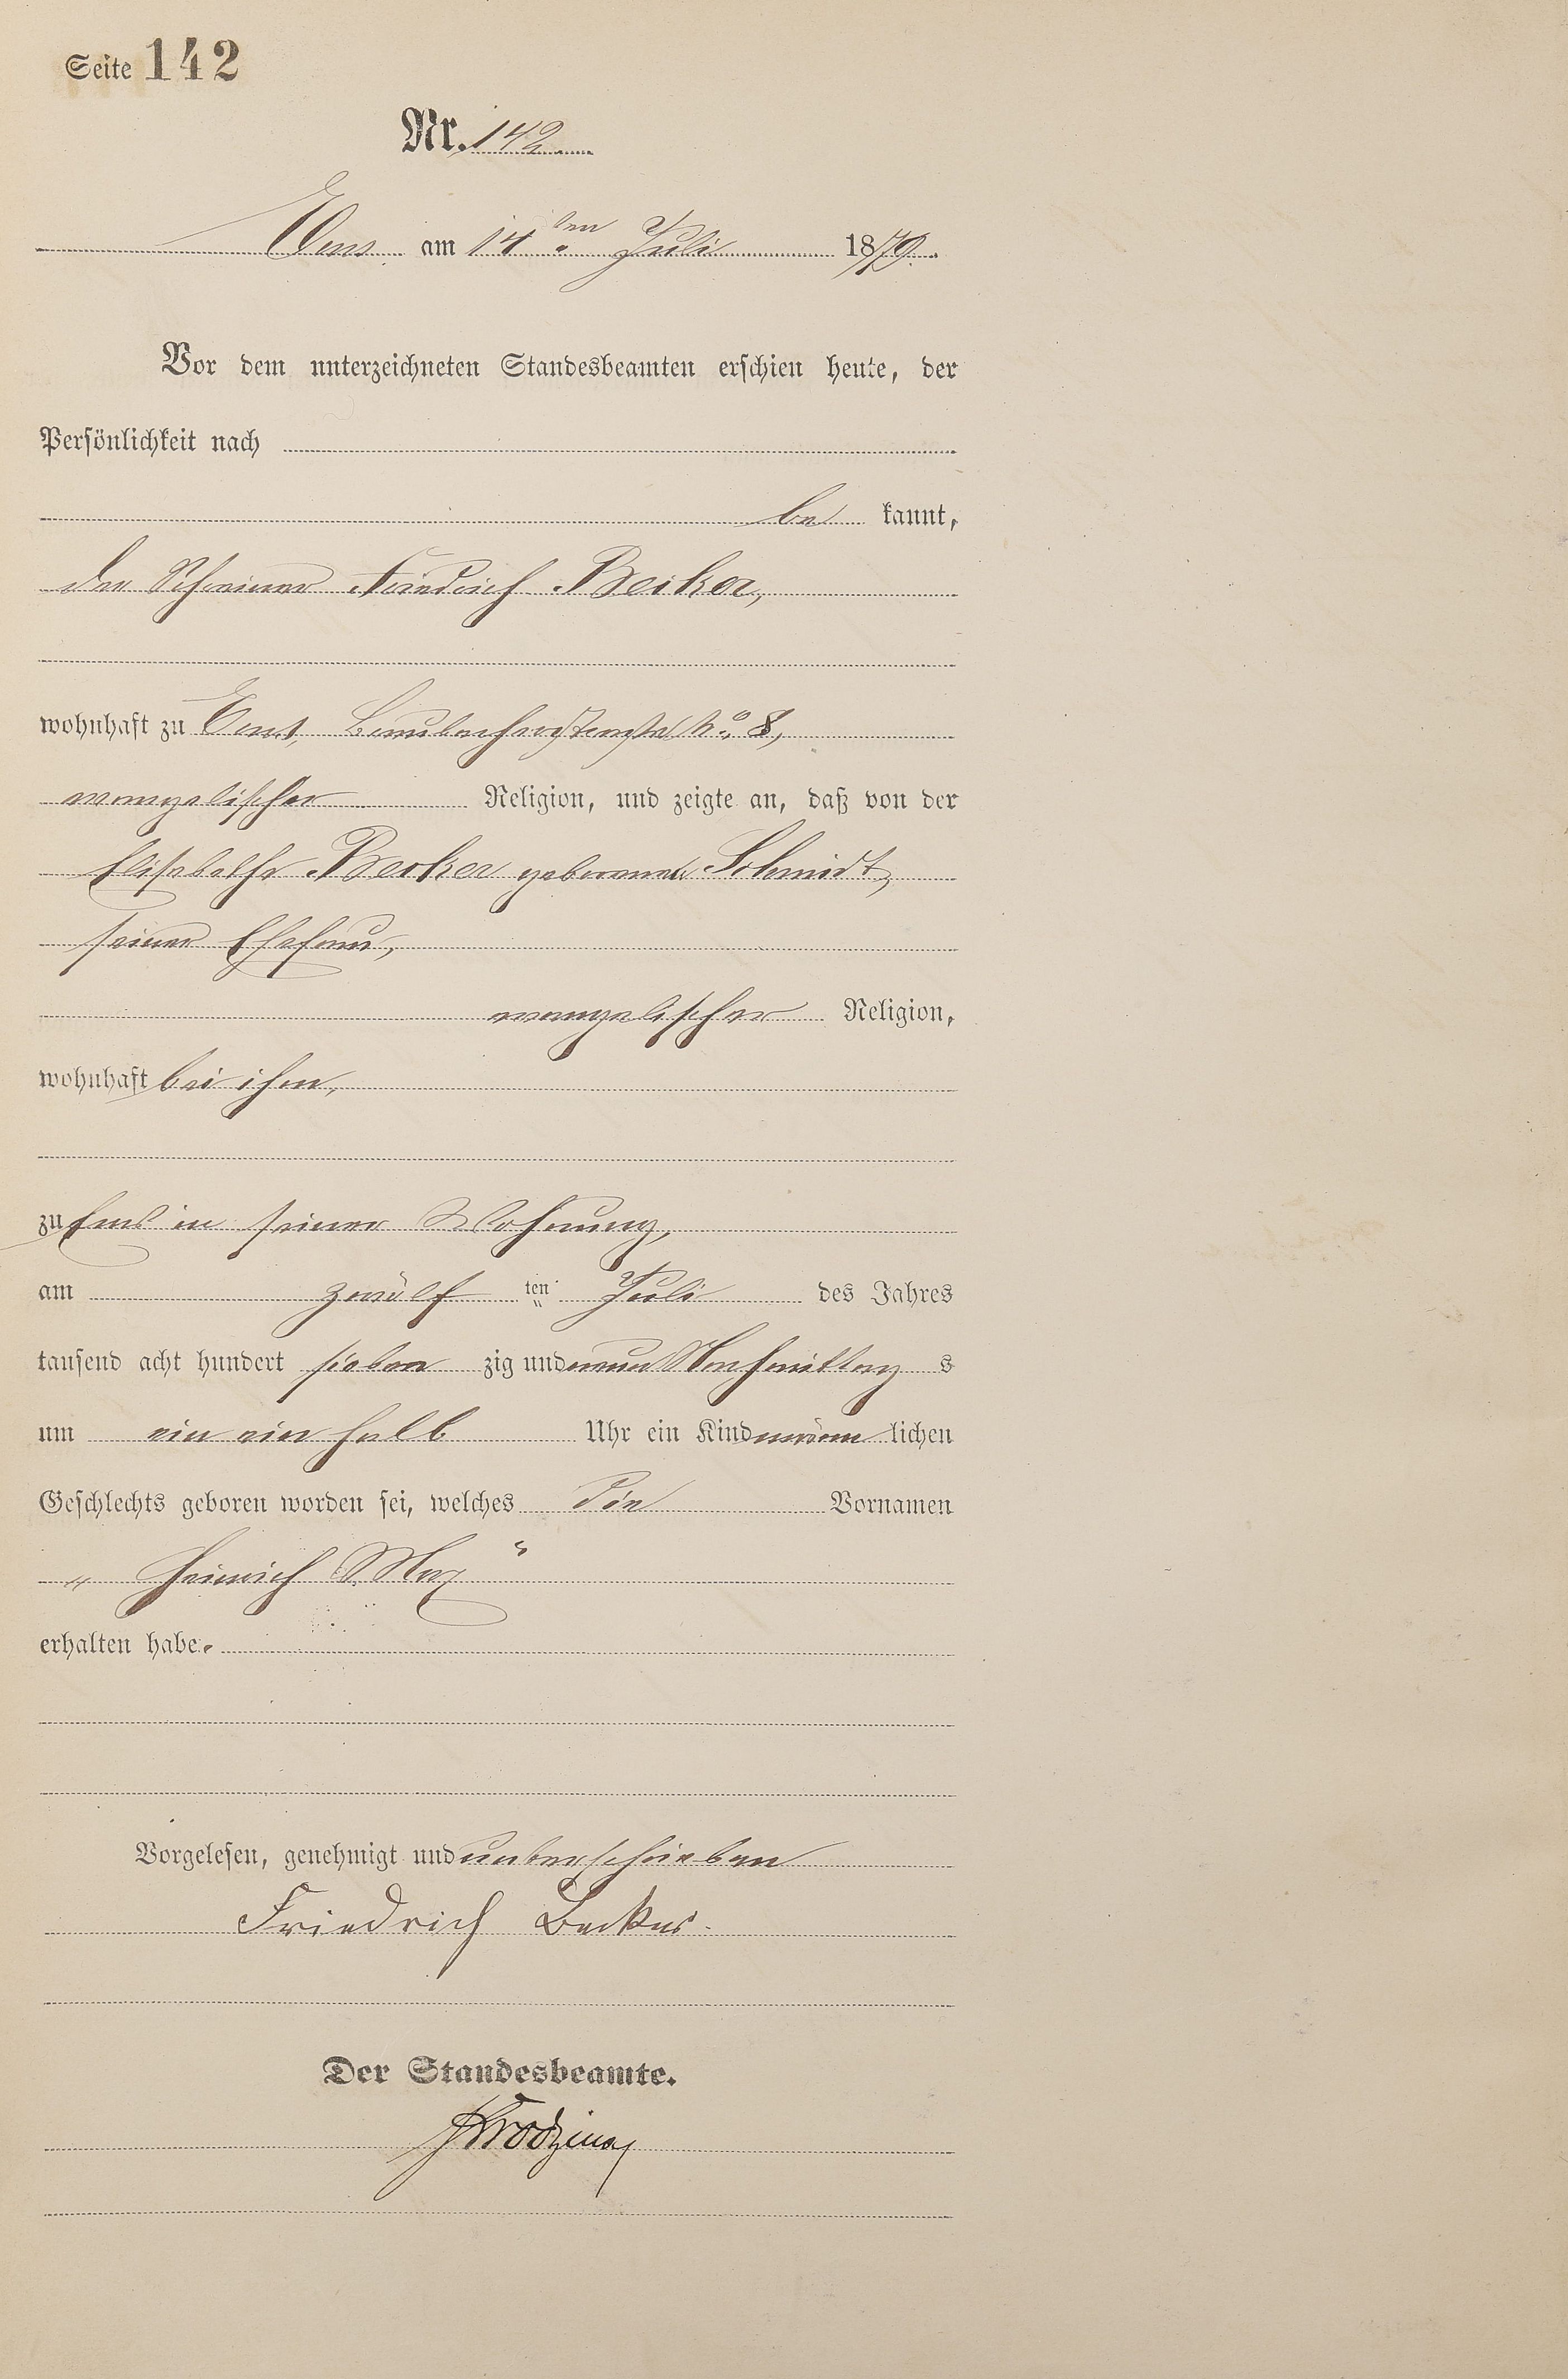 Seite 142
Nr. 142
Ems am 14ten Juli 1879.
Vor dem unterzeichneten Standesbeamten erschien heute, der
Persönlichkeit nach
be kannt,
der Schreiner Friedrich Becker,
wohnhaft zu Ems, No. 8,
evangelischer Religion, und zeigte an, daß von der
Elisabethe Becker geborenen Schmidt,
seiner Ehefrau,
evangelischer Religion,
wohnhaft bei ihm,
zu Ems in seiner Wohnung,
am zwölf ten Juli des Jahres
tausend acht hundert sieben zig und neun Nachmittag s
um ein ein halb Uhr ein Kind männ lichen
Geschlechts geboren worden sei, welches die Vornamen
„Heinrich Max“
erhalten habe.
Vorgelesen, genehmigt und unterschrieben
Friedrich Becker.
Der Standesbeamte.